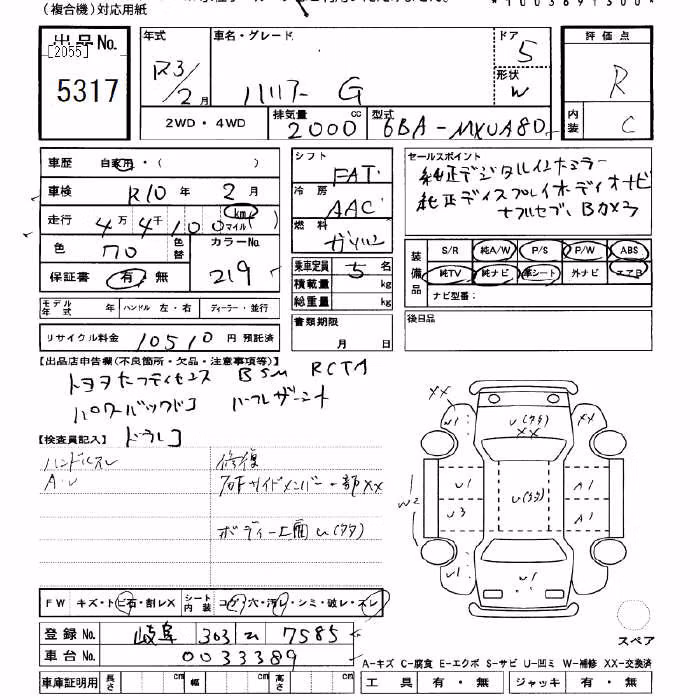 (複合機)対応用紙
出品No. [2055] 5317
年式 R3/2月
車名・グレード ハリアー G
ドア 5
形状 W
評価点 R
内装 C
2WD・4WD
排気量 2000 cc
型式 6BA-MXUA80
車歴 自家用・( )
車検 R10年 2月
走行 4万4千100 km マイル
色 クロ 色替
カラーNo. 219
保証書 有・無
シフト FAT
冷房 AAC
燃料 ガソリン
乗車定員 5 名
積載量 kg
総重量 kg
セールスポイント
純正デジタルインナーミラー
純正ディスプレイオーディオナビ
ナフルセグ、Bカメラ
装備品 S/R 純A/W P/S P/W ABS
純TV 純ナビ 革シート 外ナビ エアB
ナビ型番:
モデル年式 年 ハンドル 左・右 ディーラー・並行
リサイクル料金 10510円 預託済
書類期限 月 日
後日品
【出品店申告欄(不良箇所・欠品・注意事項等)】
トヨタセーフティセンス BSM RCTA
パワーバックドア ハーフレザーシート
ドラレコ
【検査員記入】
ハンドルスレ
A・U
修復
右Fサイドメンバー一部XX
ボディー上面U(タタ)
XX W1 U(タタ) XX XX A1
U1 U(タタ) A1
W2 U3 A1
U1 U1
FW キズ・トビ石・割レX シート内装 コゲ・穴・汚レ・シミ・破レ・スレ
登録No. 岐阜 303 ニ 7585
車台No. 0033389
スペア
A-キズ C-腐食 E-エクボ S-サビ U-凹ミ W-補修 XX-交換済
車庫証明用 長さ cm 幅 cm 高さ cm
工具 有・無 ジャッキ 有・無